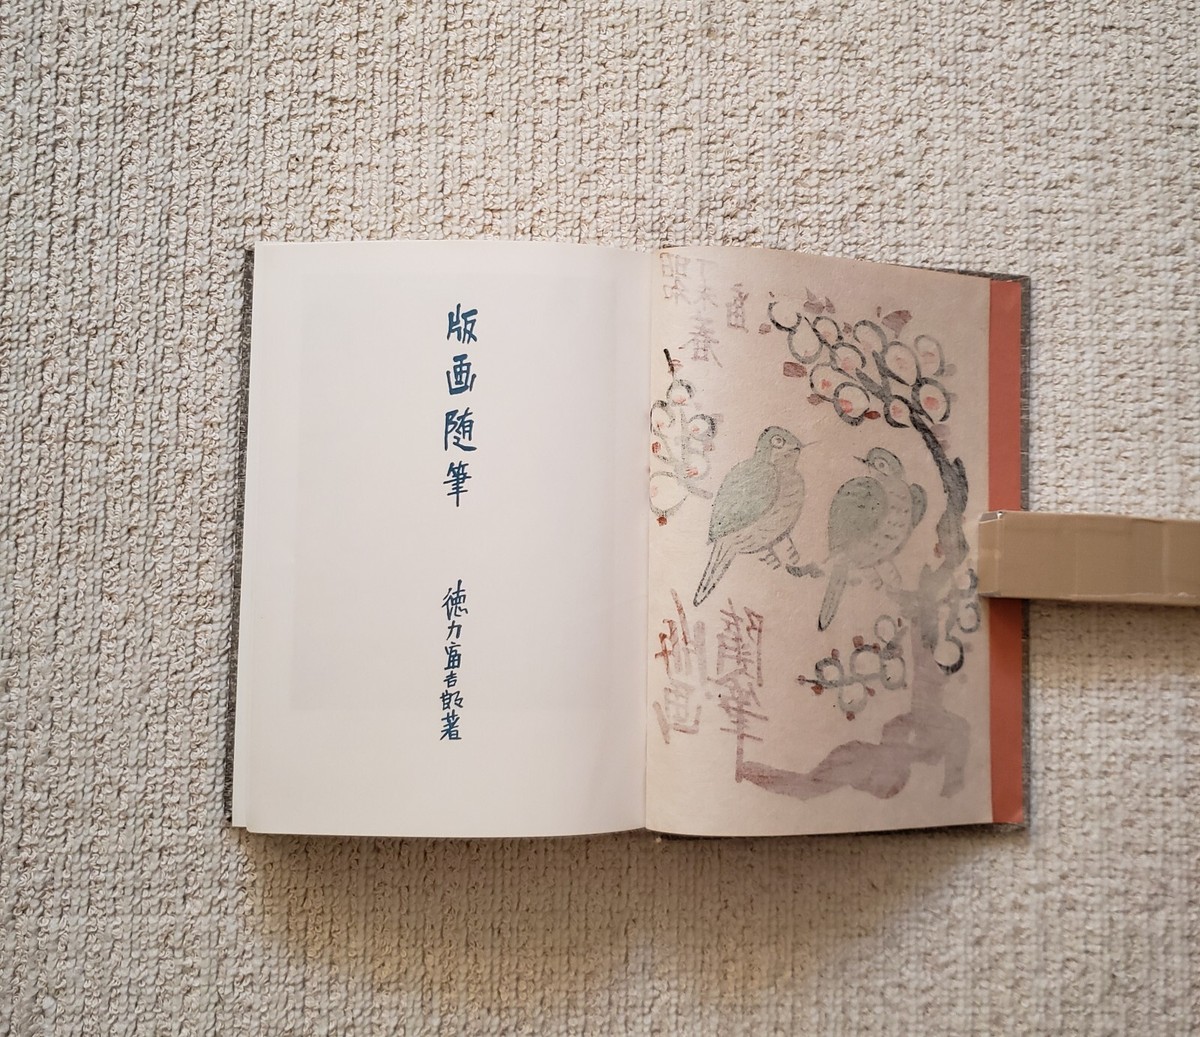 版画随筆
徳力富吉郎著
富
随筆
版画